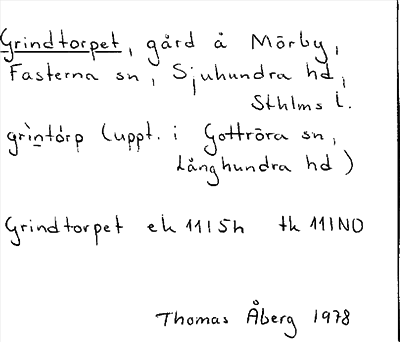 Grindtorpet, gård å Mörby,
Fasterna sn, Sjuhundra hd,
Sthlms l.
grìntórp (uppt. i Gottröra sn,
Långhundra hd)
Grindtorpet ek 11I5h tk 11INO
Thomas Åberg 1978